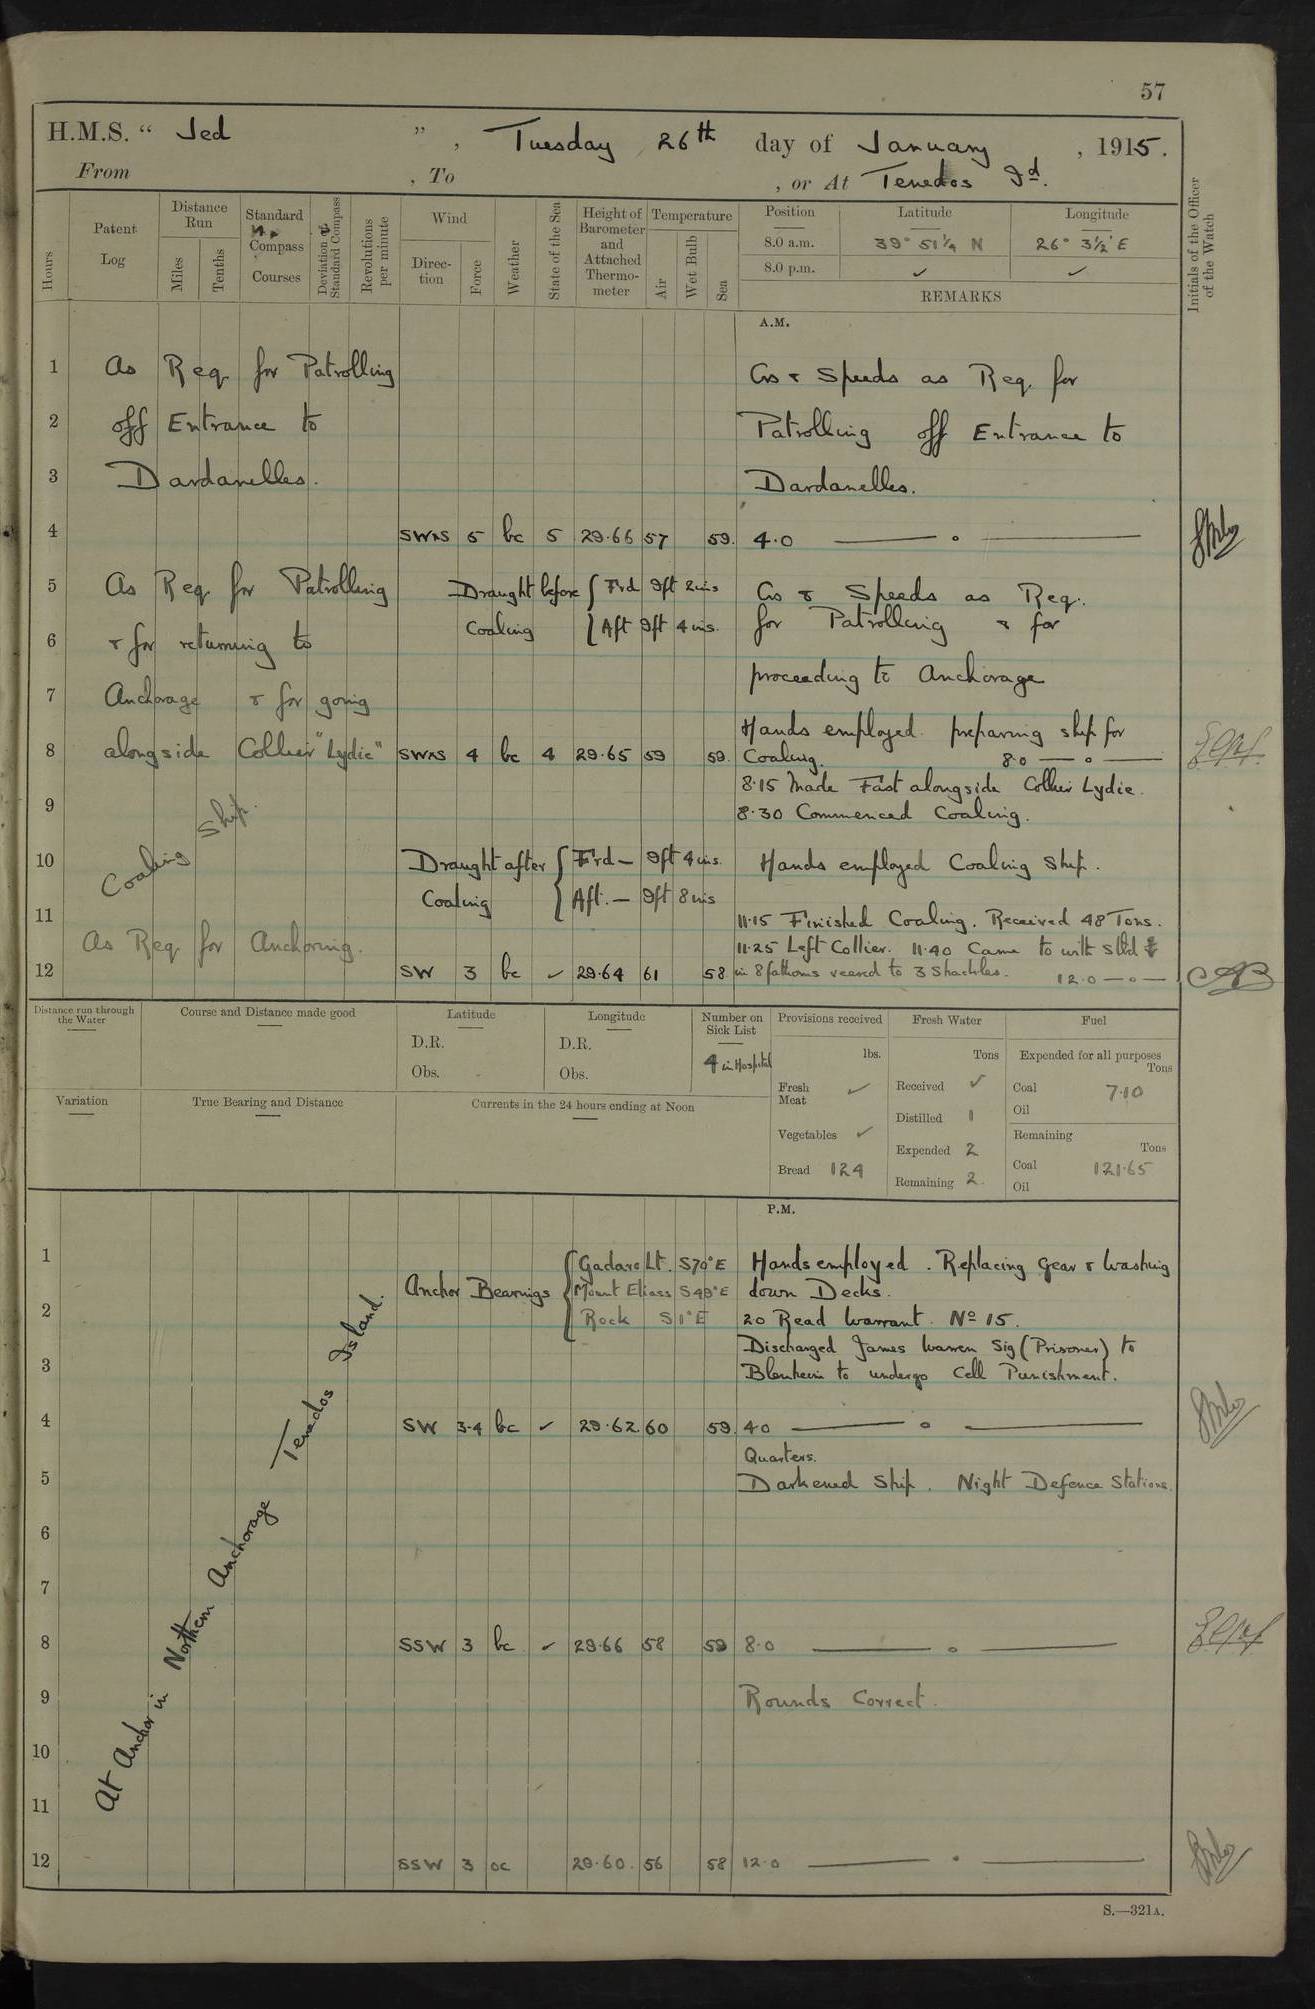 57
H.M.S. "Jed", Tuesday 26th day of January, 1915.
From , To , or At Tenedos Id.
Hours
Patent Log
Distance Run
Miles
Tenths
Standard Compass Courses
Deviation of Standard Compass
Revolutions per minute
Wind
Direction
Force
Weather
State of the Sea
Height of Barometer and Attached Thermometer
Temperature
Air
Wet Bulb
Sea
Position Latitude Longitude
8.0 a.m. 39° 51¼ N 26° 3½' E
8.0 p.m. ✓ ✓
REMARKS
Initials of the Officer of the Watch
A.M.
1 As Req for Patrolling Cos & Speeds as Req. for
2 off Entrance to Patrolling off Entrance to
3 Dardanelles. Dardanelles.
4 SWxS 5 bc 5 29.66 57 59. 4.0
5 As Req for Patrolling Draught before { Frd 9ft 2ins Cos & Speeds as Req.
6 & for returning to Coaling { Aft 9ft 4ins. for Patrolling & for
proceeding to Anchorage
7 Anchorage & for going
Hands employed preparing ship for
8 alongside Collier "Lydie" SWxS 4 bc 4 29.65 59 59. Coaling. 8.0
8.15 Made Fast alongside Collier Lydie.
9 8.30 Commenced Coaling.
Coaling Ship.
10 Draught after { Frd — 9ft 4ins. Hands employed Coaling Ship.
Coaling { Aft. — 9ft 8ins
11 11.15 Finished Coaling. Received 48 Tons.
As Req for Anchoring. 11.25 Left Collier. 11.40 Came to with Stbd
12 SW 3 bc ✓ 29.64 61 58 in 8 fathoms veered to 3 Shackles. 12.0
Distance run through the Water
Course and Distance made good
Latitude
D.R.
Obs.
Longitude
D.R.
Obs.
Number on Sick List
4 in Hospital
Provisions received
lbs.
Fresh Meat ✓
Vegetables ✓
Bread 124
Fresh Water
Tons
Received ✓
Distilled 1
Expended 2
Remaining 2.
Fuel
Expended for all purposes
Tons
Coal 7.10
Oil
Remaining
Tons
Coal 121.65
Oil
Variation
True Bearing and Distance
Currents in the 24 hours ending at Noon
P.M.
1 Anchor Bearings { Gadaro Lt. S70°E Hands employed. Replacing Gear & washing
Mount Elias S49°E down Decks.
2 Rock S1°E 2.0 Read Warrant No 15.
Discharged James Warren Sig (Prisoner) to
3 Blenheim to undergo Cell Punishment.
4 SW 3-4 bc ✓ 29.62 60 59. 4.0
Quarters.
5 Darkened Ship. Night Defence Stations.
6
7
8 SSW 3 bc ✓ 29.66 58 59 8.0
9 Rounds Correct.
10
11
12 SSW 3 oc 29.60. 56 58 12.0
At Anchor in Northern Anchorage Tenedos Island.
S.—321A.